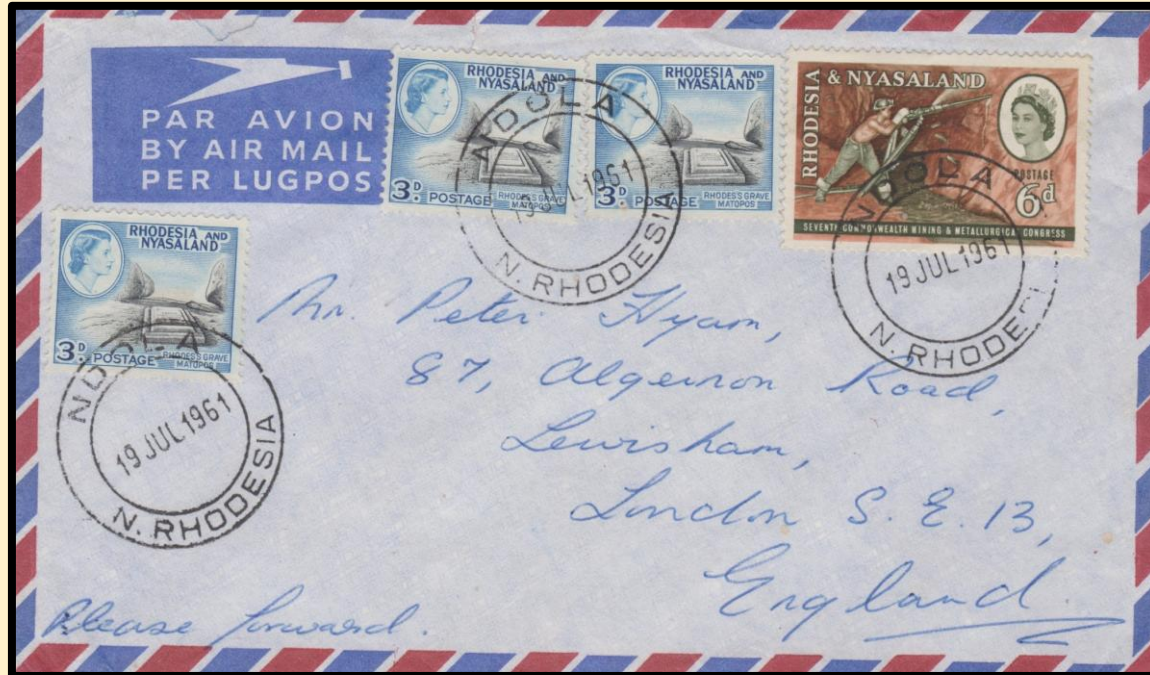 PAR AVION
BY AIR MAIL
PER LUGPOS
RHODESIA AND
NYASALAND
3D. POSTAGE
RHODES'S GRAVE
MATOPOS
RHODESIA AND
NYASALAND
3D. POSTAGE
RHODES'S GRAVE
MATOPOS
NDOLA
19 JUL 1961
N. RHODESIA
RHODESIA & NYASALAND
POSTAGE
6d
SEVENTH COMMONWEALTH MINING & METALLURGICAL CONGRESS
NDOLA
19 JUL 1961
N. RHODESIA
RHODESIA AND
NYASALAND
3D. POSTAGE
RHODES'S GRAVE
MATOPOS
NDOLA
19 JUL 1961
N. RHODESIA
Mr. Peter Hyam,
87, Algernon Road,
Lewisham,
London S.E. 13,
England.
Please forward.